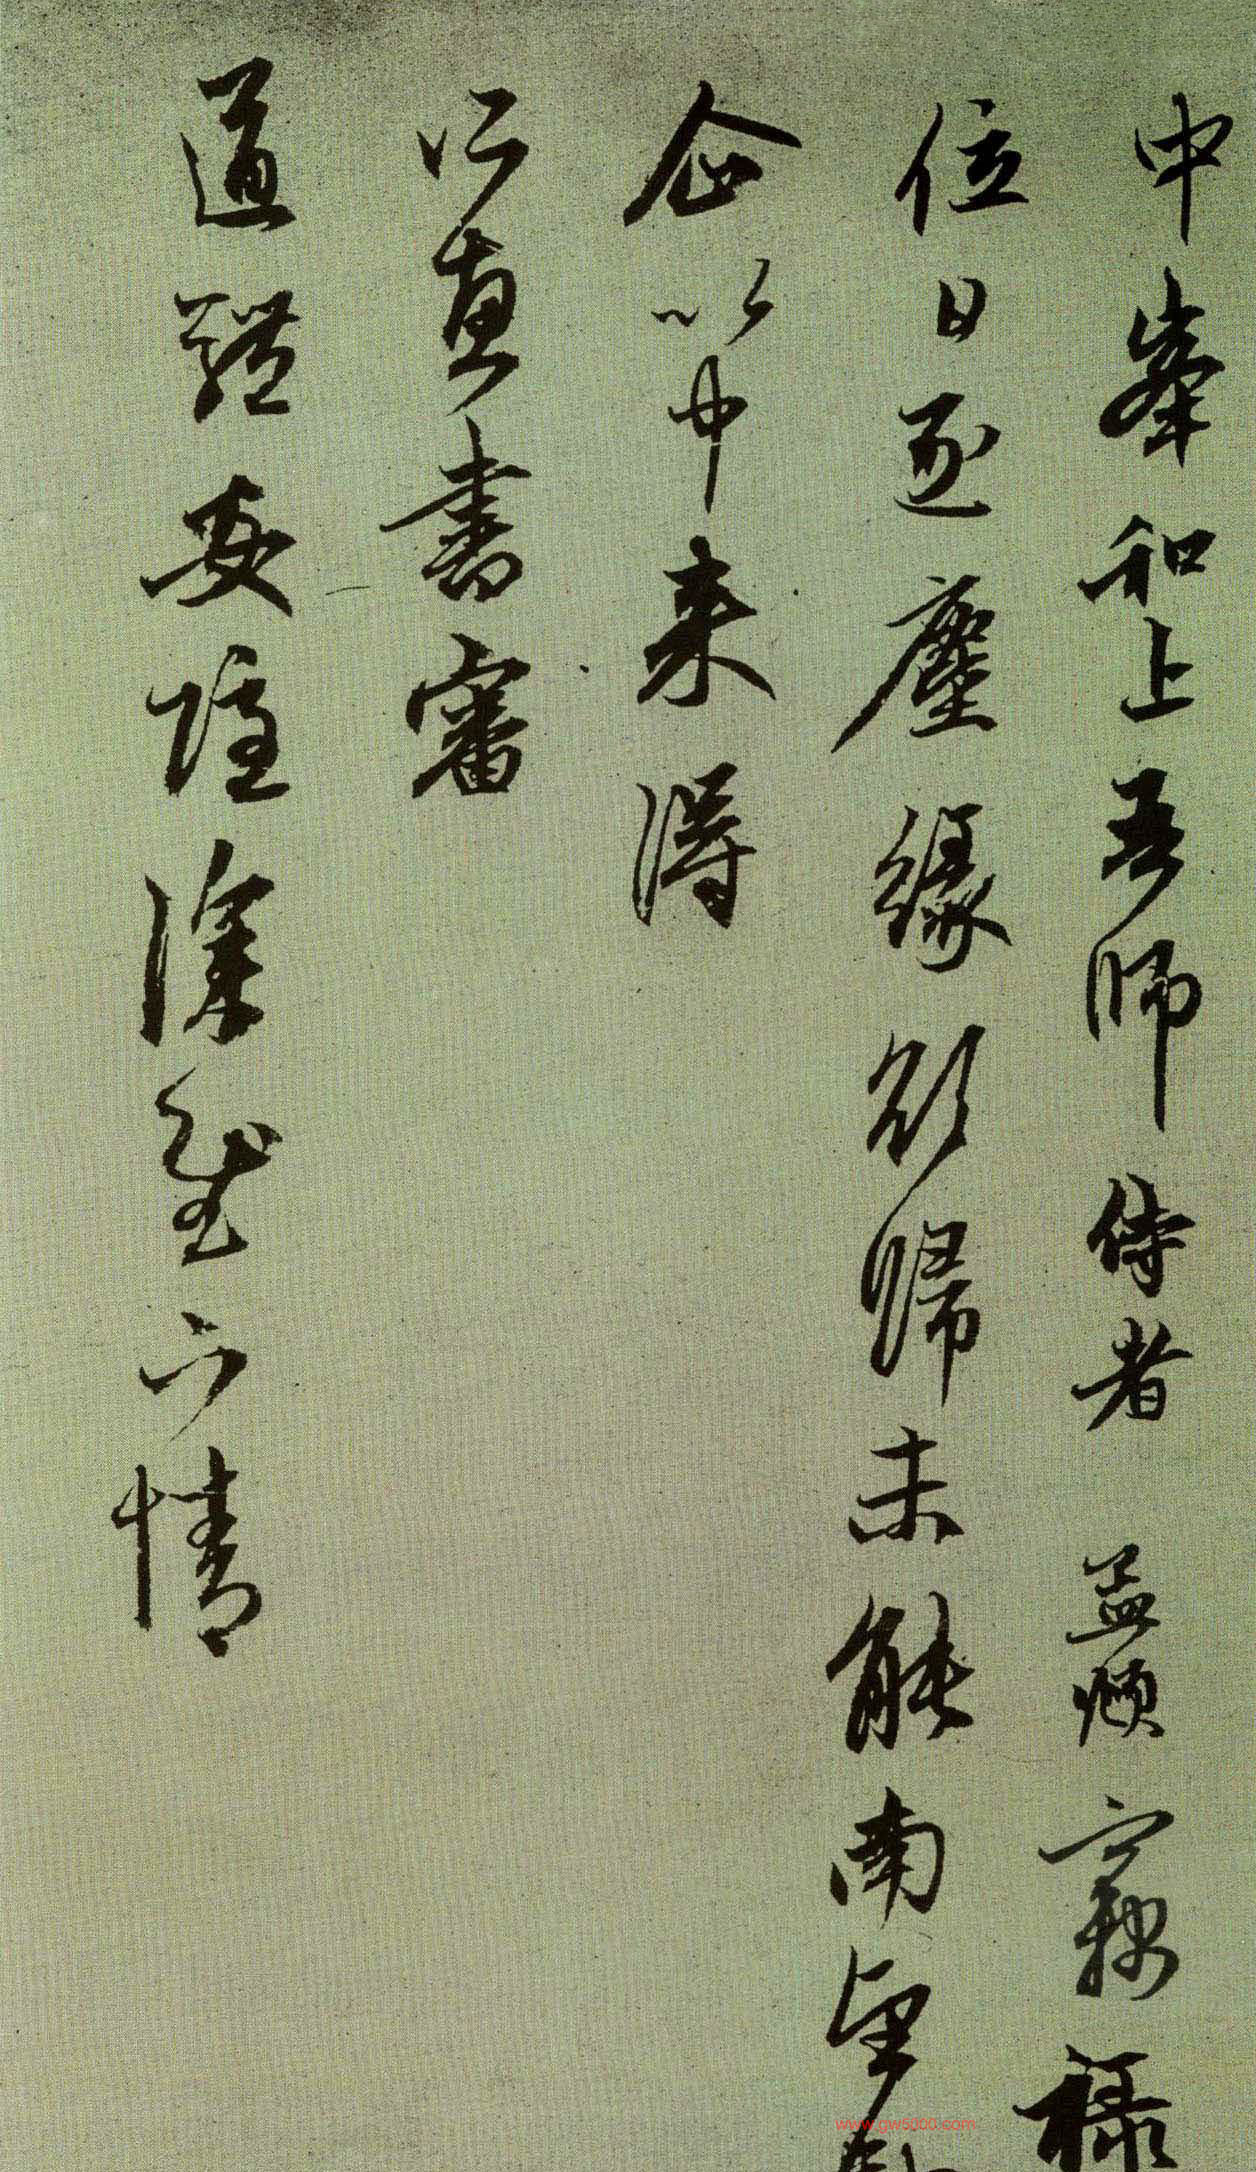 中峯和上吾師侍者孟頫竊祿
位日逐塵緣欲歸未能南望
企以中來得
所惠書審
道體安隱深慰下情
www.gw5000.com